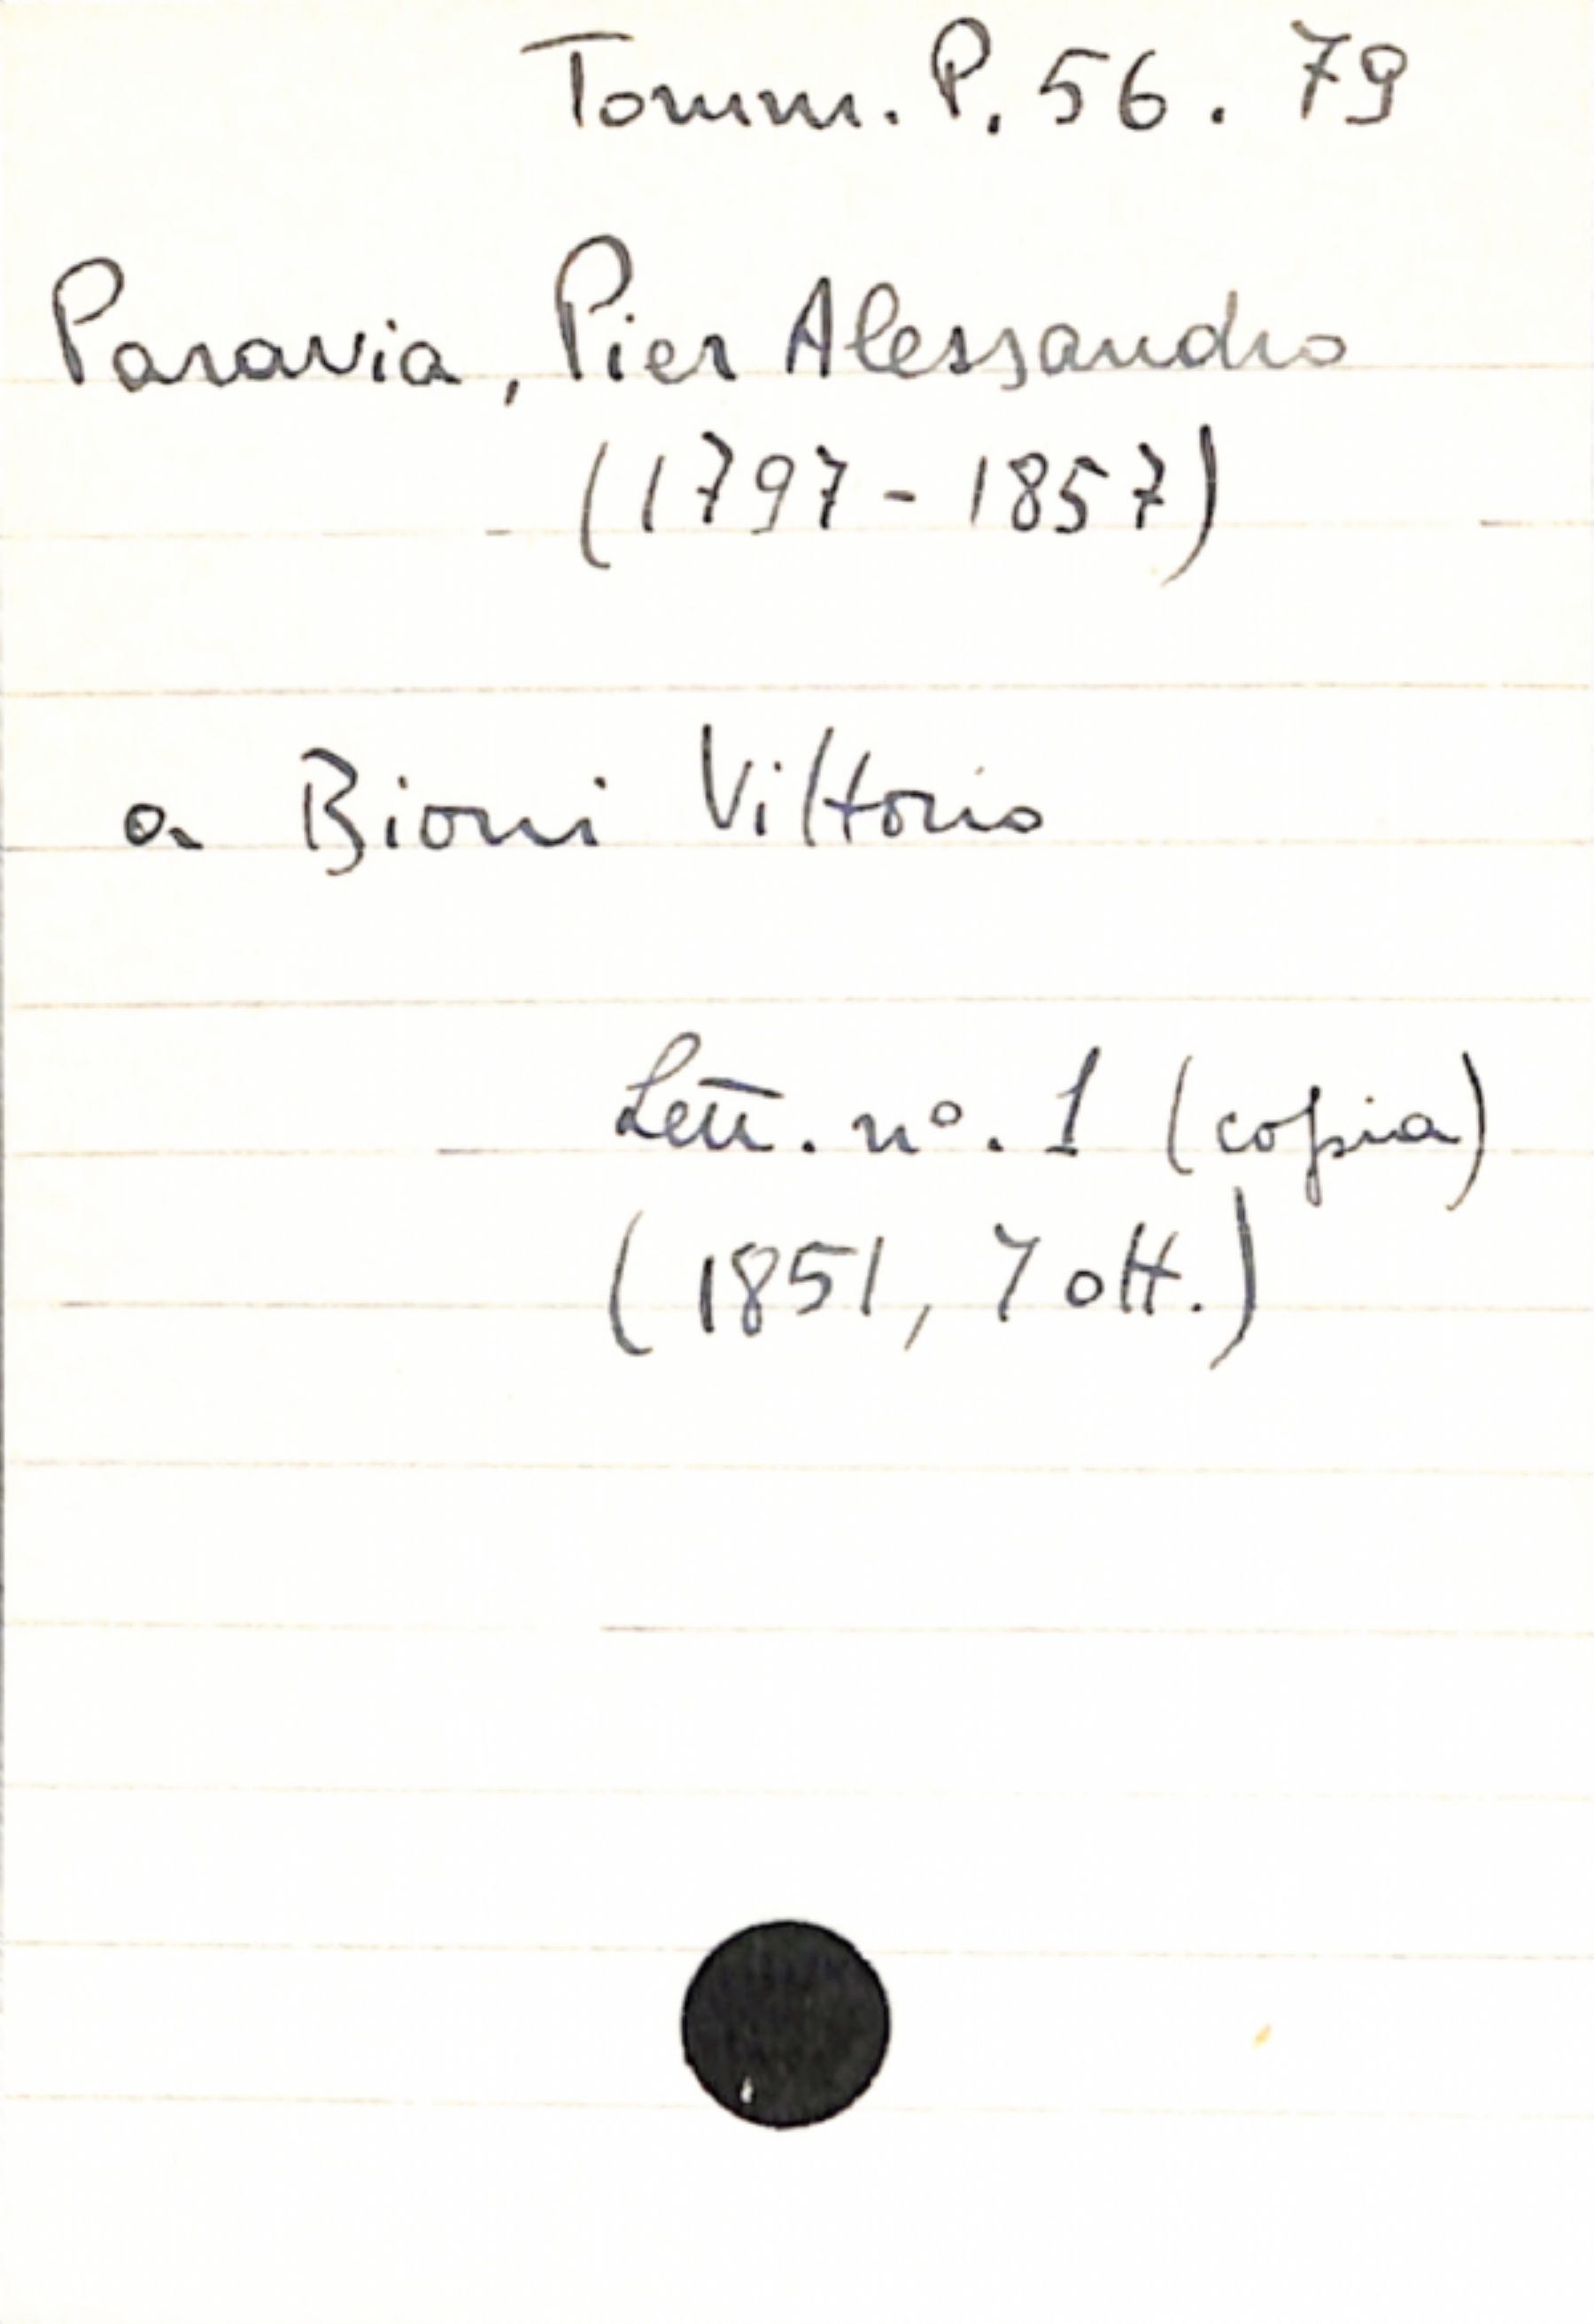 Tomm. P. 56. 79
Paravia, Pier Alessandro
(1797-1857)
a Bioni Vittorio
Lett. nº. 1 (copia)
(1851, 7 ott.)